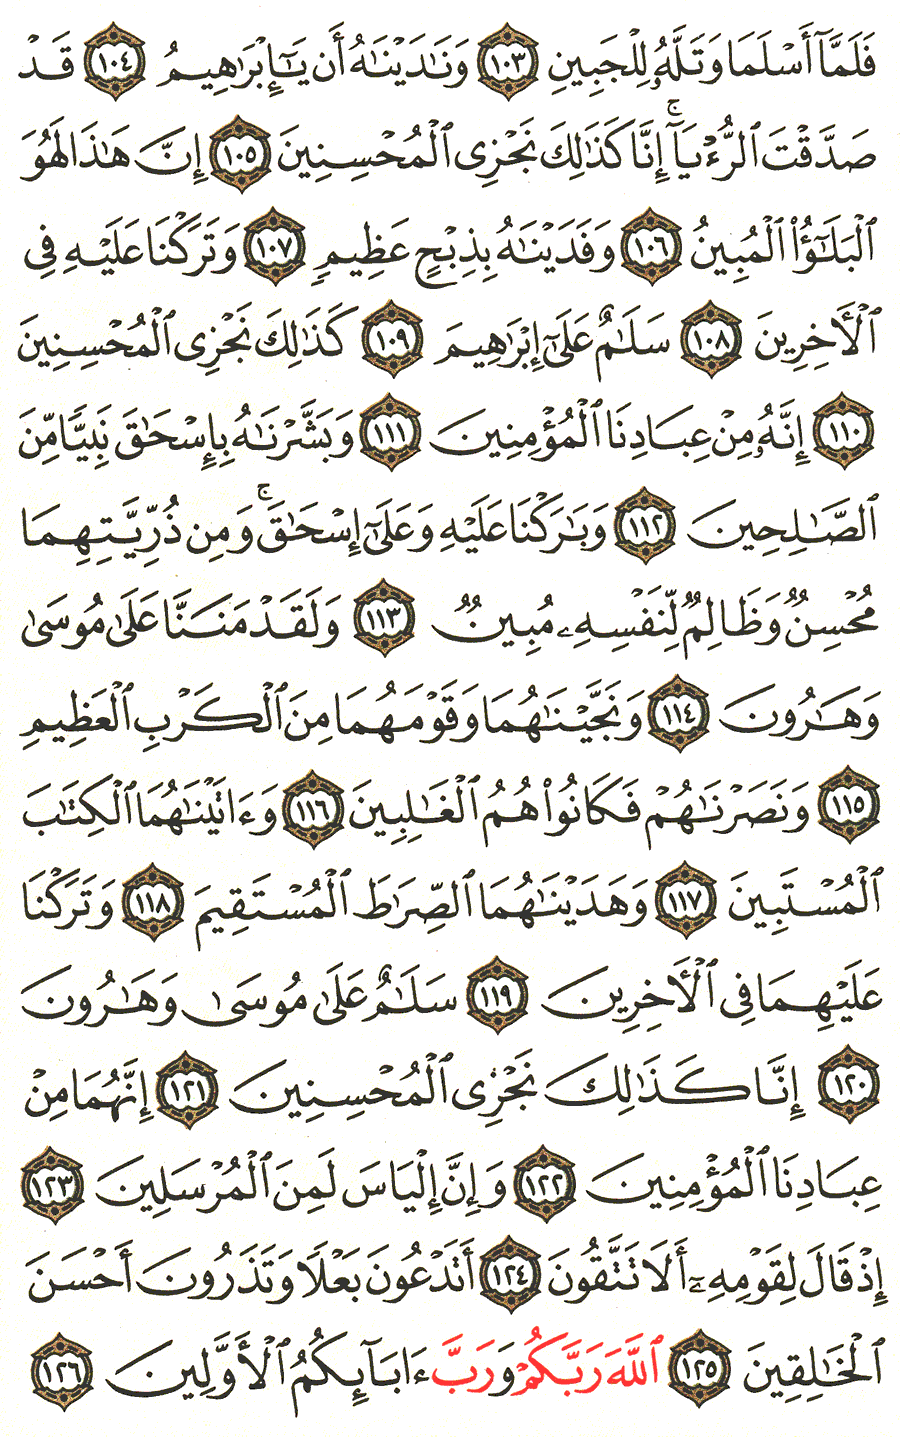 فَلَمَّآ أَسْلَمَا وَتَلَّهُۥ لِلْجَبِينِ ١٠٣ وَنَٰدَيْنَٰهُ أَن يَٰٓإِبْرَٰهِيمُ ١٠٤ قَدْ
صَدَّقْتَ ٱلرُّءْيَآۚ إِنَّا كَذَٰلِكَ نَجْزِى ٱلْمُحْسِنِينَ ١٠٥ إِنَّ هَٰذَا لَهُوَ
ٱلْبَلَٰٓؤُا۟ ٱلْمُبِينُ ١٠٦ وَفَدَيْنَٰهُ بِذِبْحٍ عَظِيمٍ ١٠٧ وَتَرَكْنَا عَلَيْهِ فِى
ٱلْأَخِرِينَ ١٠٨ سَلَٰمٌ عَلَىٰٓ إِبْرَٰهِيمَ ١٠٩ كَذَٰلِكَ نَجْزِى ٱلْمُحْسِنِينَ
١١٠ إِنَّهُۥ مِنْ عِبَادِنَا ٱلْمُؤْمِنِينَ ١١١ وَبَشَّرْنَٰهُ بِإِسْحَٰقَ نَبِيًّا مِّنَ
ٱلصَّٰلِحِينَ ١١٢ وَبَٰرَكْنَا عَلَيْهِ وَعَلَىٰٓ إِسْحَٰقَۚ وَمِن ذُرِّيَّتِهِمَا
مُحْسِنٌ وَظَالِمٌ لِّنَفْسِهِۦ مُبِينٌ ١١٣ وَلَقَدْ مَنَنَّا عَلَىٰ مُوسَىٰ
وَهَٰرُونَ ١١٤ وَنَجَّيْنَٰهُمَا وَقَوْمَهُمَا مِنَ ٱلْكَرْبِ ٱلْعَظِيمِ
١١٥ وَنَصَرْنَٰهُمْ فَكَانُوا۟ هُمُ ٱلْغَٰلِبِينَ ١١٦ وَءَاتَيْنَٰهُمَا ٱلْكِتَٰبَ
ٱلْمُسْتَبِينَ ١١٧ وَهَدَيْنَٰهُمَا ٱلصِّرَٰطَ ٱلْمُسْتَقِيمَ ١١٨ وَتَرَكْنَا
عَلَيْهِمَا فِى ٱلْأَخِرِينَ ١١٩ سَلَٰمٌ عَلَىٰ مُوسَىٰ وَهَٰرُونَ
١٢٠ إِنَّا كَذَٰلِكَ نَجْزِى ٱلْمُحْسِنِينَ ١٢١ إِنَّهُمَا مِنْ
عِبَادِنَا ٱلْمُؤْمِنِينَ ١٢٢ وَإِنَّ إِلْيَاسَ لَمِنَ ٱلْمُرْسَلِينَ ١٢٣
إِذْ قَالَ لِقَوْمِهِۦٓ أَلَا تَتَّقُونَ ١٢٤ أَتَدْعُونَ بَعْلًا وَتَذَرُونَ أَحْسَنَ
ٱلْخَٰلِقِينَ ١٢٥ ٱللَّهَ رَبَّكُمْ وَرَبَّ ءَابَآئِكُمُ ٱلْأَوَّلِينَ ١٢٦